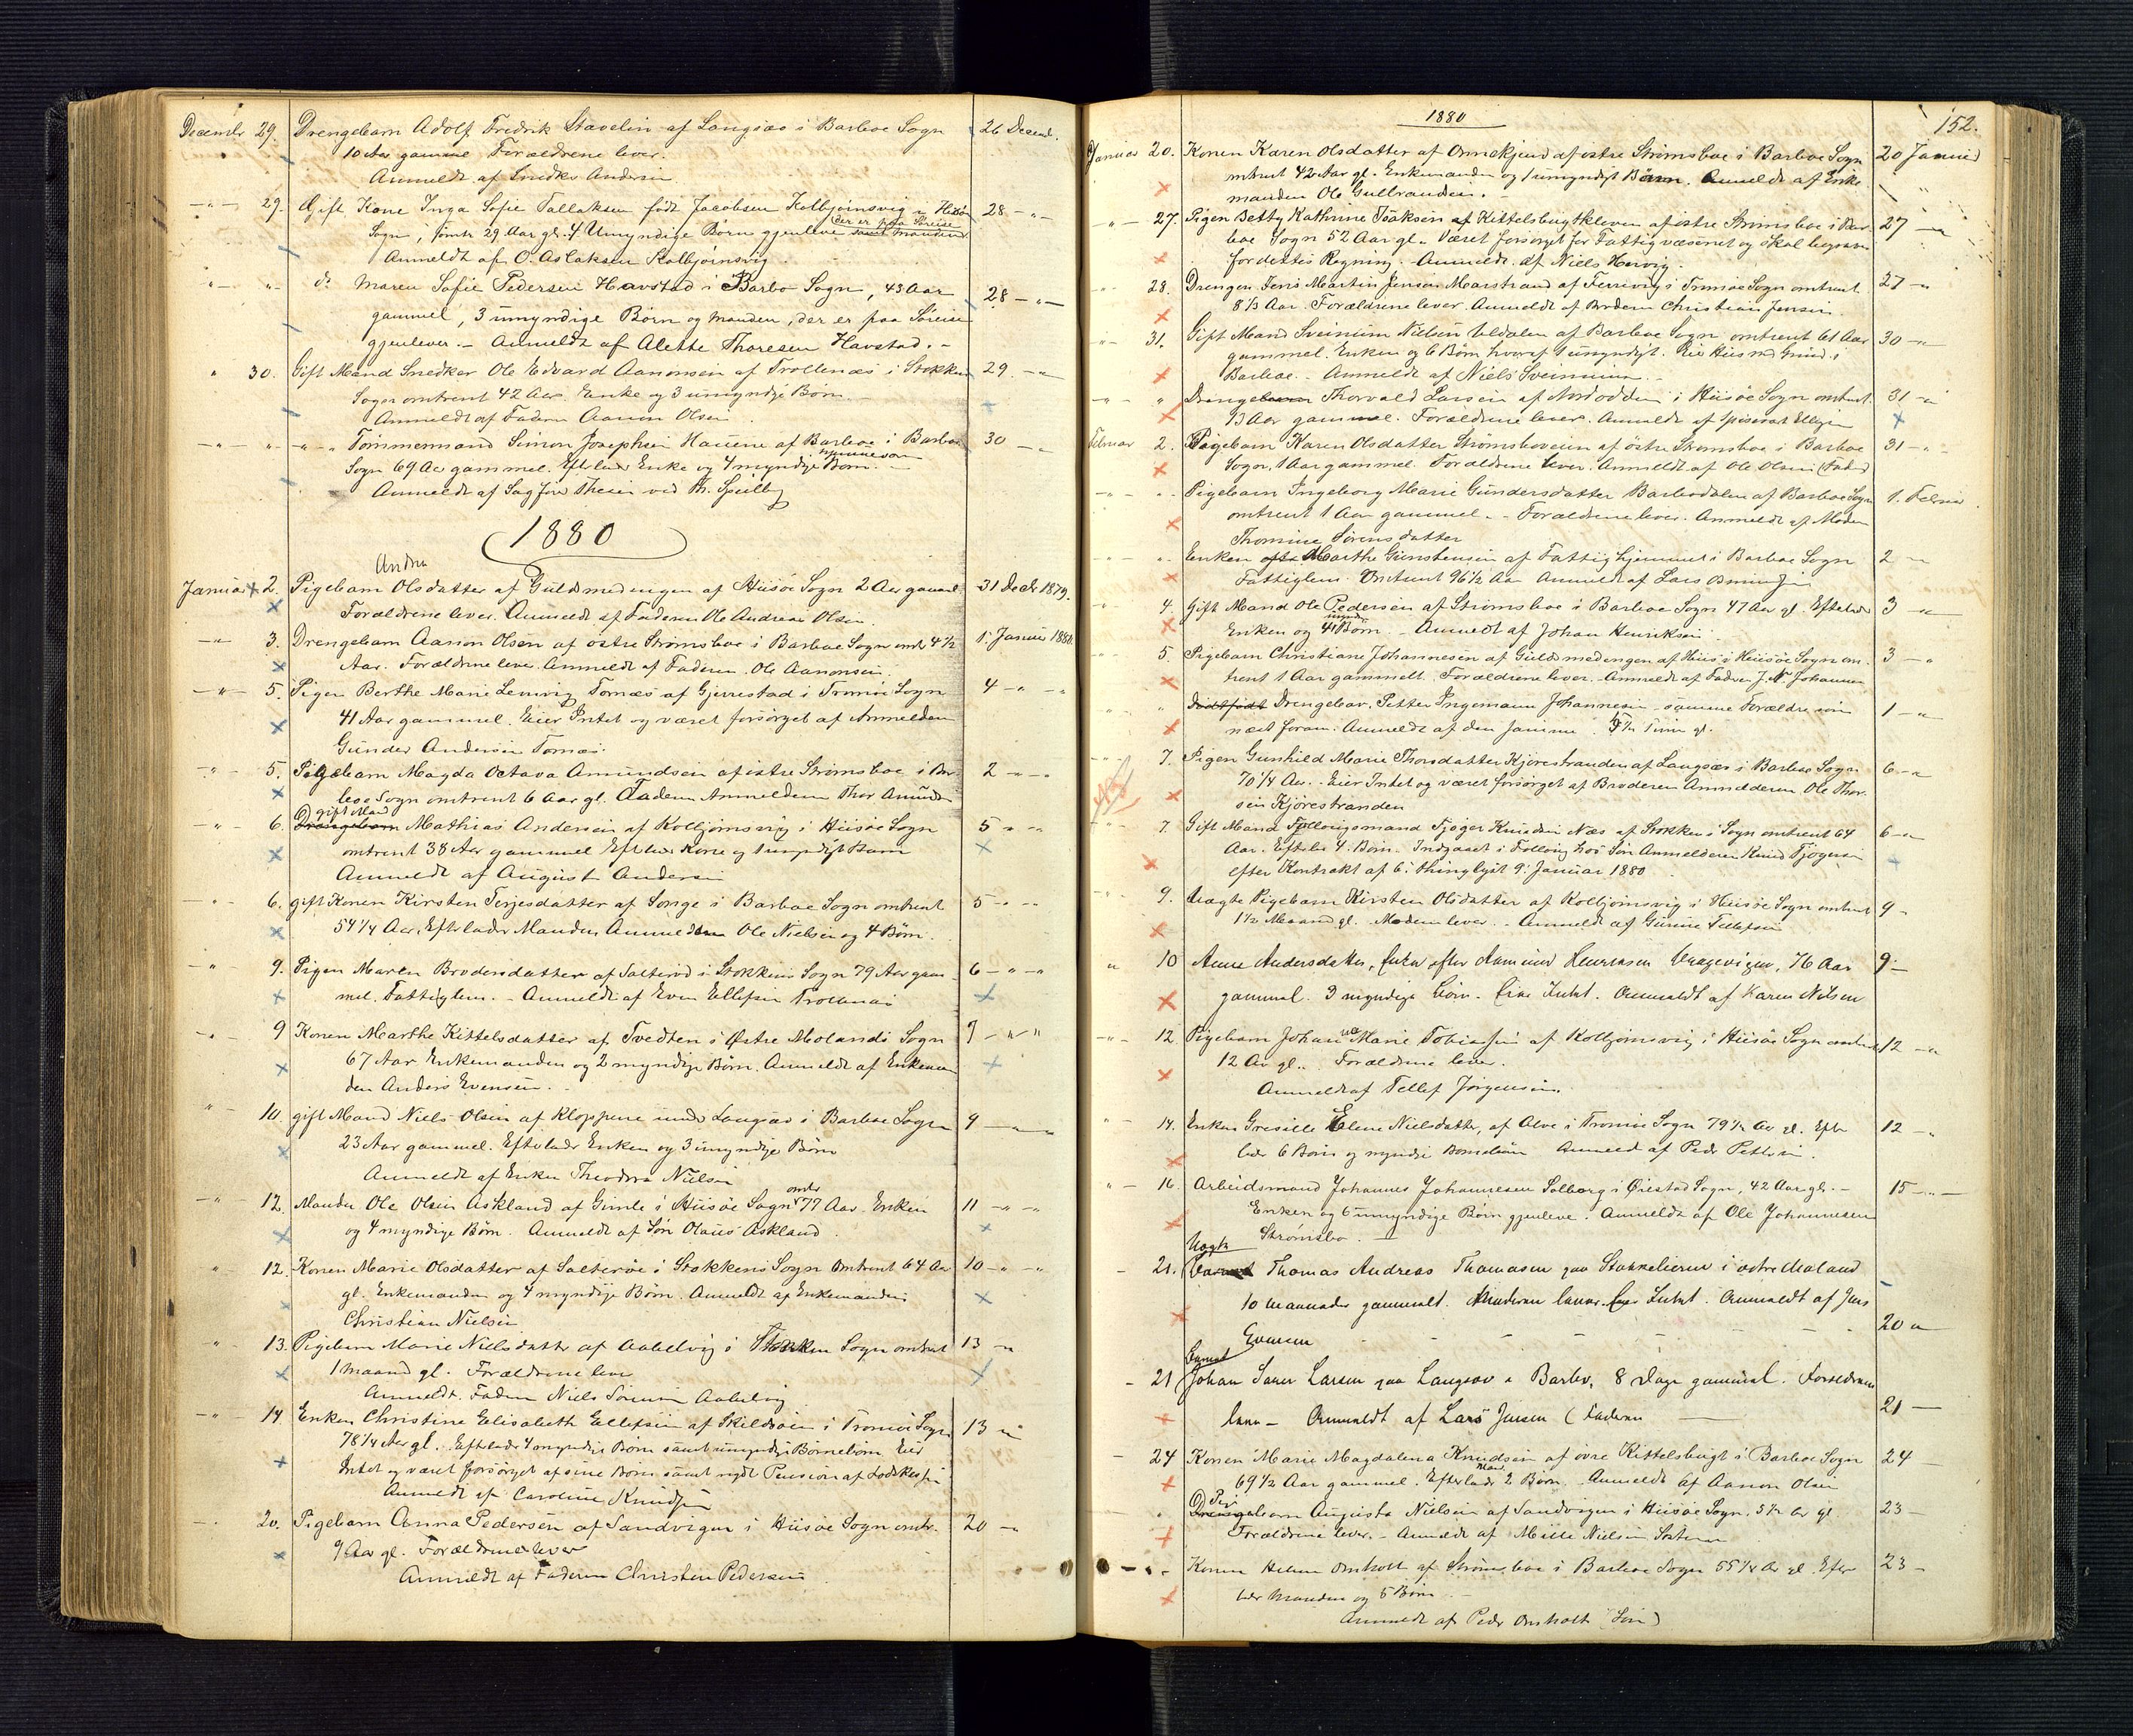 Decembr 29. Drengebarn Adolf Fredrik Stavelin af Langsæe i Barboe Sogn 26 Decemb.
10 Aar gammel Forældrene lever.
Anmeldt af Snedker Andersen
-"- 29. Gift Kone Inga Sofie Tallaksen født Jacobsen Kolbjørnsvig i Hisø 28 -"-
Sogn, 29 Aar gl. 4 Umyndige Børn gjenleve samt Manden der er paa Søreise
Anmeldt af O. Aslaksen Kolbjørnsvig.
-"- "- do Maren Sofie Pedersen Havstad i Barbo Sogn, 43 Aar 28 -"-
gammel, 3 umyndige Børn og Manden, der er paa Søreise
gjenlever. - Anmeldt af Alette Thoresen Havstad. -
" 30. Gift Mand Snedker Ole Edvard Aanonsen af Trollenæs i Stokken 29. -"-
Sogn omtrent 42 Aar. Enke og 3 umyndige Børn
Anmeldt af Faderen Aanon Olsen
-"- "- "- Tømmermand Simon Josephsen af Barboe i Barboe 30 -"-
Sogn 69 Aar gammel. Efterlader Enke og 4 myndige Børn.
Anmeldt af Sagfører Theien ved Th.
1880
Andrea
Januar 2. Pigebarn Olsdatter af Guldsmedengen af Hiisøe Sogn 2 Aar gammel 31 Decbr 1879.
Forældrene lever. Anmeldt af Faderen Ole Andreas Olsen.
-"- 3. Drengebarn Aanon Olsen af østre Strømsboe i Barboe Sogn omtr 4 1/2 1. Januar 1880.
Aar. Forældrene lever. Anmeldt af Faderen Ole Aanonsen
-"- 5. Pigen Berthe Marie Lemvig Tornæs af Gjerrestad i Tromøe Sogn 4 -"-
41 Aar gammel. Eier Intet og været forsørget af Anmelderen
Gunder Andersen Tornæs.
-"- 5. Pigebarn Magda Octava Amundsen af østre Strømsboe i Bar- 2 -"-
boe Sogn omtrent 6 Aar gl. Faderen Anmelderen Thor Amundsen
gift Mand
-"- 6. Drengebarn Mathias Andersen af Kolbjørnsvig i Hiisøe Sogn 5 -"-
omtrent 38 Aar gammel Efterlader Kone og 1 umyndigt Barn
Anmeldt af August Andersen
-"- 6. gift Konen Kirsten Terjesdatter af Songe i Barboe Sogn omtrent 5 -"-
54 1/4 Aar, Efterlader Manden Anmelderen Ole Nielsen og 4 Børn.
-"- 9. Pigen Maren Brodersdatter af Salterød i Stokkens Sogn 79 Aar gam- 6 -"-
mel. Fattiglem. - Anmeldt af Even Ellefsen Trollenæs
-"- 9 Konen Marthe Kittelsdatter af Tvedten i Østre Molands Sogn 9 -"-
67 Aar. Enkemanden og 2 myndige Børn. Anmeldt af Enkeman
den Anders Evensen.
" 10. gift Mand Niels Olsen af Kloppene under Langsæe i Barboe Sogn 9 -"-
23 Aar gammel. Efterlader Enken og 3 umyndige Børn
Anmeldt af Enken Theodora Nielsen
-"- 12. Manden Ole Olsen Askland af Gimle i Hiisøe Sogn omtr 77 Aar. Enken 11 -"-
og 4 myndige Børn. Anmeldt af Søn Olaus Askland.
" 12. Konen Marie Olsdatter af Salterøe i Stokkens Sogn Omtrent 64 Aar 10 -"-
gl. Enkemanden og 4 myndige Børn. Anmeldt af Enkemanden
Christian Nielsen
" 13. Pigebarn Marie Nielsdatter af Aabelvig i Stokken Sogn omtrent 13 -"
1 Maaned gl. Forældrene lever
Anmeldt. Faderen Niels Aabelvig
-"- 14 Enken Christine Elisabeth Ellefsen af Skilsøen i Tromøe Sogn 13 "
78 1/4 Aar gl. Efterlader 4 myndige Børn samt umyndige Børnebørn Eier
Intet og været forsørget af sine Børn samt nydt Pension af
Anmeldt af Caroline Knudsen
-"- 20. Pigebarn Anna Pedersen af Sandvigen i Hiisøe Sogn omtr. 20 -"
9 Aar gl. Forældrene lever
Anmeldt af Faderen Christen Pedersen
1880
152.
Januar 20. Konen Karen Olsdatter af af østre Strømsboe i Barboe Sogn 20 Januar
omtrent 42 Aar gl. Enkemanden og 1 umyndigt Barn. Anmeldt af Enke
manden Ole Gulbrandsen.
-"- 27. Pigen Betty Kathrine Isaksen af Kittelsbugtkleven af østre Strømsboe i Bar- 27 -"-
boe Sogn 52 Aar gl. Været forsørget for Fattigvæsenet og skal begraves
for dettes Regning. Anmeldt af Niels
" 28. Drengen Jens Martin Jensen Marstrand af Færvig i Tromøe Sogn omtrent 27 -"
8 1/3 Aar. Forældrene lever. Anmeldt af Broderen Christian Jensen.
-"- 31. Gift Mand Sveinum Nielsen af Barboe Sogn omtrent 61 Aar 30 -"
gammel. Enken og 6 Børn hvoraf 1 umyndigt. Eier Huus med Grund i
Barboe. - Anmeldt af Niels Sveinumsen. -
-"- " Drengebarn Thorvald Larsen af Nordodden i Hiisøe Sogn omtrent 31 -"
13 Aar gammel. Forældrene lever. Anmeldt af Ellefsen
Februar 2. Pigebarn Karen Olsdatter Strømsboveien af østre Strømsboe i Barboe 31 -"-
Sogn, 1 Aar gammel. Forældrene lever. Anmeldt af Ole Olsen (Fader)
-"- "- Pigebarn Ingeborg Marie Gundersdatter Barbodalen af Barboe Sogn 1. Februar
omtrent 1 Aar gammel. - Forældrene lever. Anmeldt af Moderen
Thomine Sørensdatter
" Enken Marthe Gunstensen af Fattighjemmet i Barboe Sogn 2 -"
Fattiglem. Omtrent 96 1/2 Aar Anmeldt af Lars
" 4. Gift Mand Ole Pedersen af Strømsboe i Barboe Sogn 47 Aar gl. Efterlader 3 -"
Enken og 4 Børn. - Anmeldt af Johan Henriksen.
" 5. Pigebarn Christiane Johannesen af Guldsmedengen af Hiisøe Sogn om- 3 -"
trent 1 Aar gammelt. Forældrene lever. - Anmeldt af Faderen J. N. Johannesen
" Dødfødt Drengebarn. Petter Ingemann Johannesen samme Forældre som 1 -"
næst foran. Anmeldt af den samme. Time gl.
" 7. Pigen Gunhild Marie Thorsdatter Kjørestranden af Langsæe i Barboe Sogn 6 -"
70 1/4 Aar. Eier Intet og været forsørget af Broderen Anmelderen Ole Thor-
sen Kjørestranden
" 7. Gift Mand Follougsmand Tjøger Knudsen Næs af Stokkens Sogn omtrent 64 6 -"
Aar. Efterlader 4 Børn. Indgaaet i Folloug hos Søn Anmelderen Knud Tjøgersen
efter Kontrakt af 6. thinglyst 9. Januar 1880
" 9. Uægte Pigebarn Kirsten Olsdatter af Kolbjørnsvig i Hiisøe Sogn omtrent 9 -
1 1/2 Maaned gl. Moderen lever. Anmeldt af Gurine Tellefsen
" 10 Anne Andersdatter, Enke efter Henriksen Vragevigen, 76 Aar 9 -
gammel. 3 myndige Børn. Eier Intet. Anmeldt af Karen Nilsen
-"- 12 Pigebarn Johanne Marie Tobiassen af Kolbjørnsvig i Hiisøe Sogn omtrent 12 -"
12 Aar gl. Forældrene lever.
Anmeldt af Tellef Jørgensen.
" 14. Enken Gresille Elene Nielsdatter, af Alve i Tromøe Sogn 79 1/2 Aar gl. Efter 12 -"
lader 6 Børn og myndige Børnebørn Anmeldt af Peder Pettersen.
" 16. Arbeidsmand Johannes Johannesen Solberg i Øiestad Sogn, 42 Aar gl. - 15 -"-
Enken og 6 umyndige Børn gjenleve. Anmeldt af Ole Johannesen
Strømsbo.
Uægte
- 21. Thomas Andreas Thomasen paa i østre Moland
10 Maaneder gammelt. Moderen lever. Eier Intet. Anmeldt af Jens 20 "
Evensen
- 21 Johan Larsen paa Langsæv i Barbo, 8 Dage gammel. Forældrene
leve - Anmeldt af Lars Jensen (Faderen 21 -
- 24 Konen Marie Magdalena Knudsen af øvre Kittelsbugt i Barboe Sogn 24 -
69 1/2 Aar gammel. Efterlader Mand 2 Børn. Anmeldt af Aanon Olsen
Pige
" Drengebarn Augusta Nielsen af Sandvigen i Hiisøe Sogn. 5 1/2 Aar gl 23 -
Forældrene lever. - Anmeldt af Mille Nielsen Søsteren
Konen Helene Omholt af Strømsboe i Barboe Sogn 55 1/4 Aar gl. Efter 23 -
lader Manden og 5 Børn
Anmeldt af Peder Omholt (Søn)